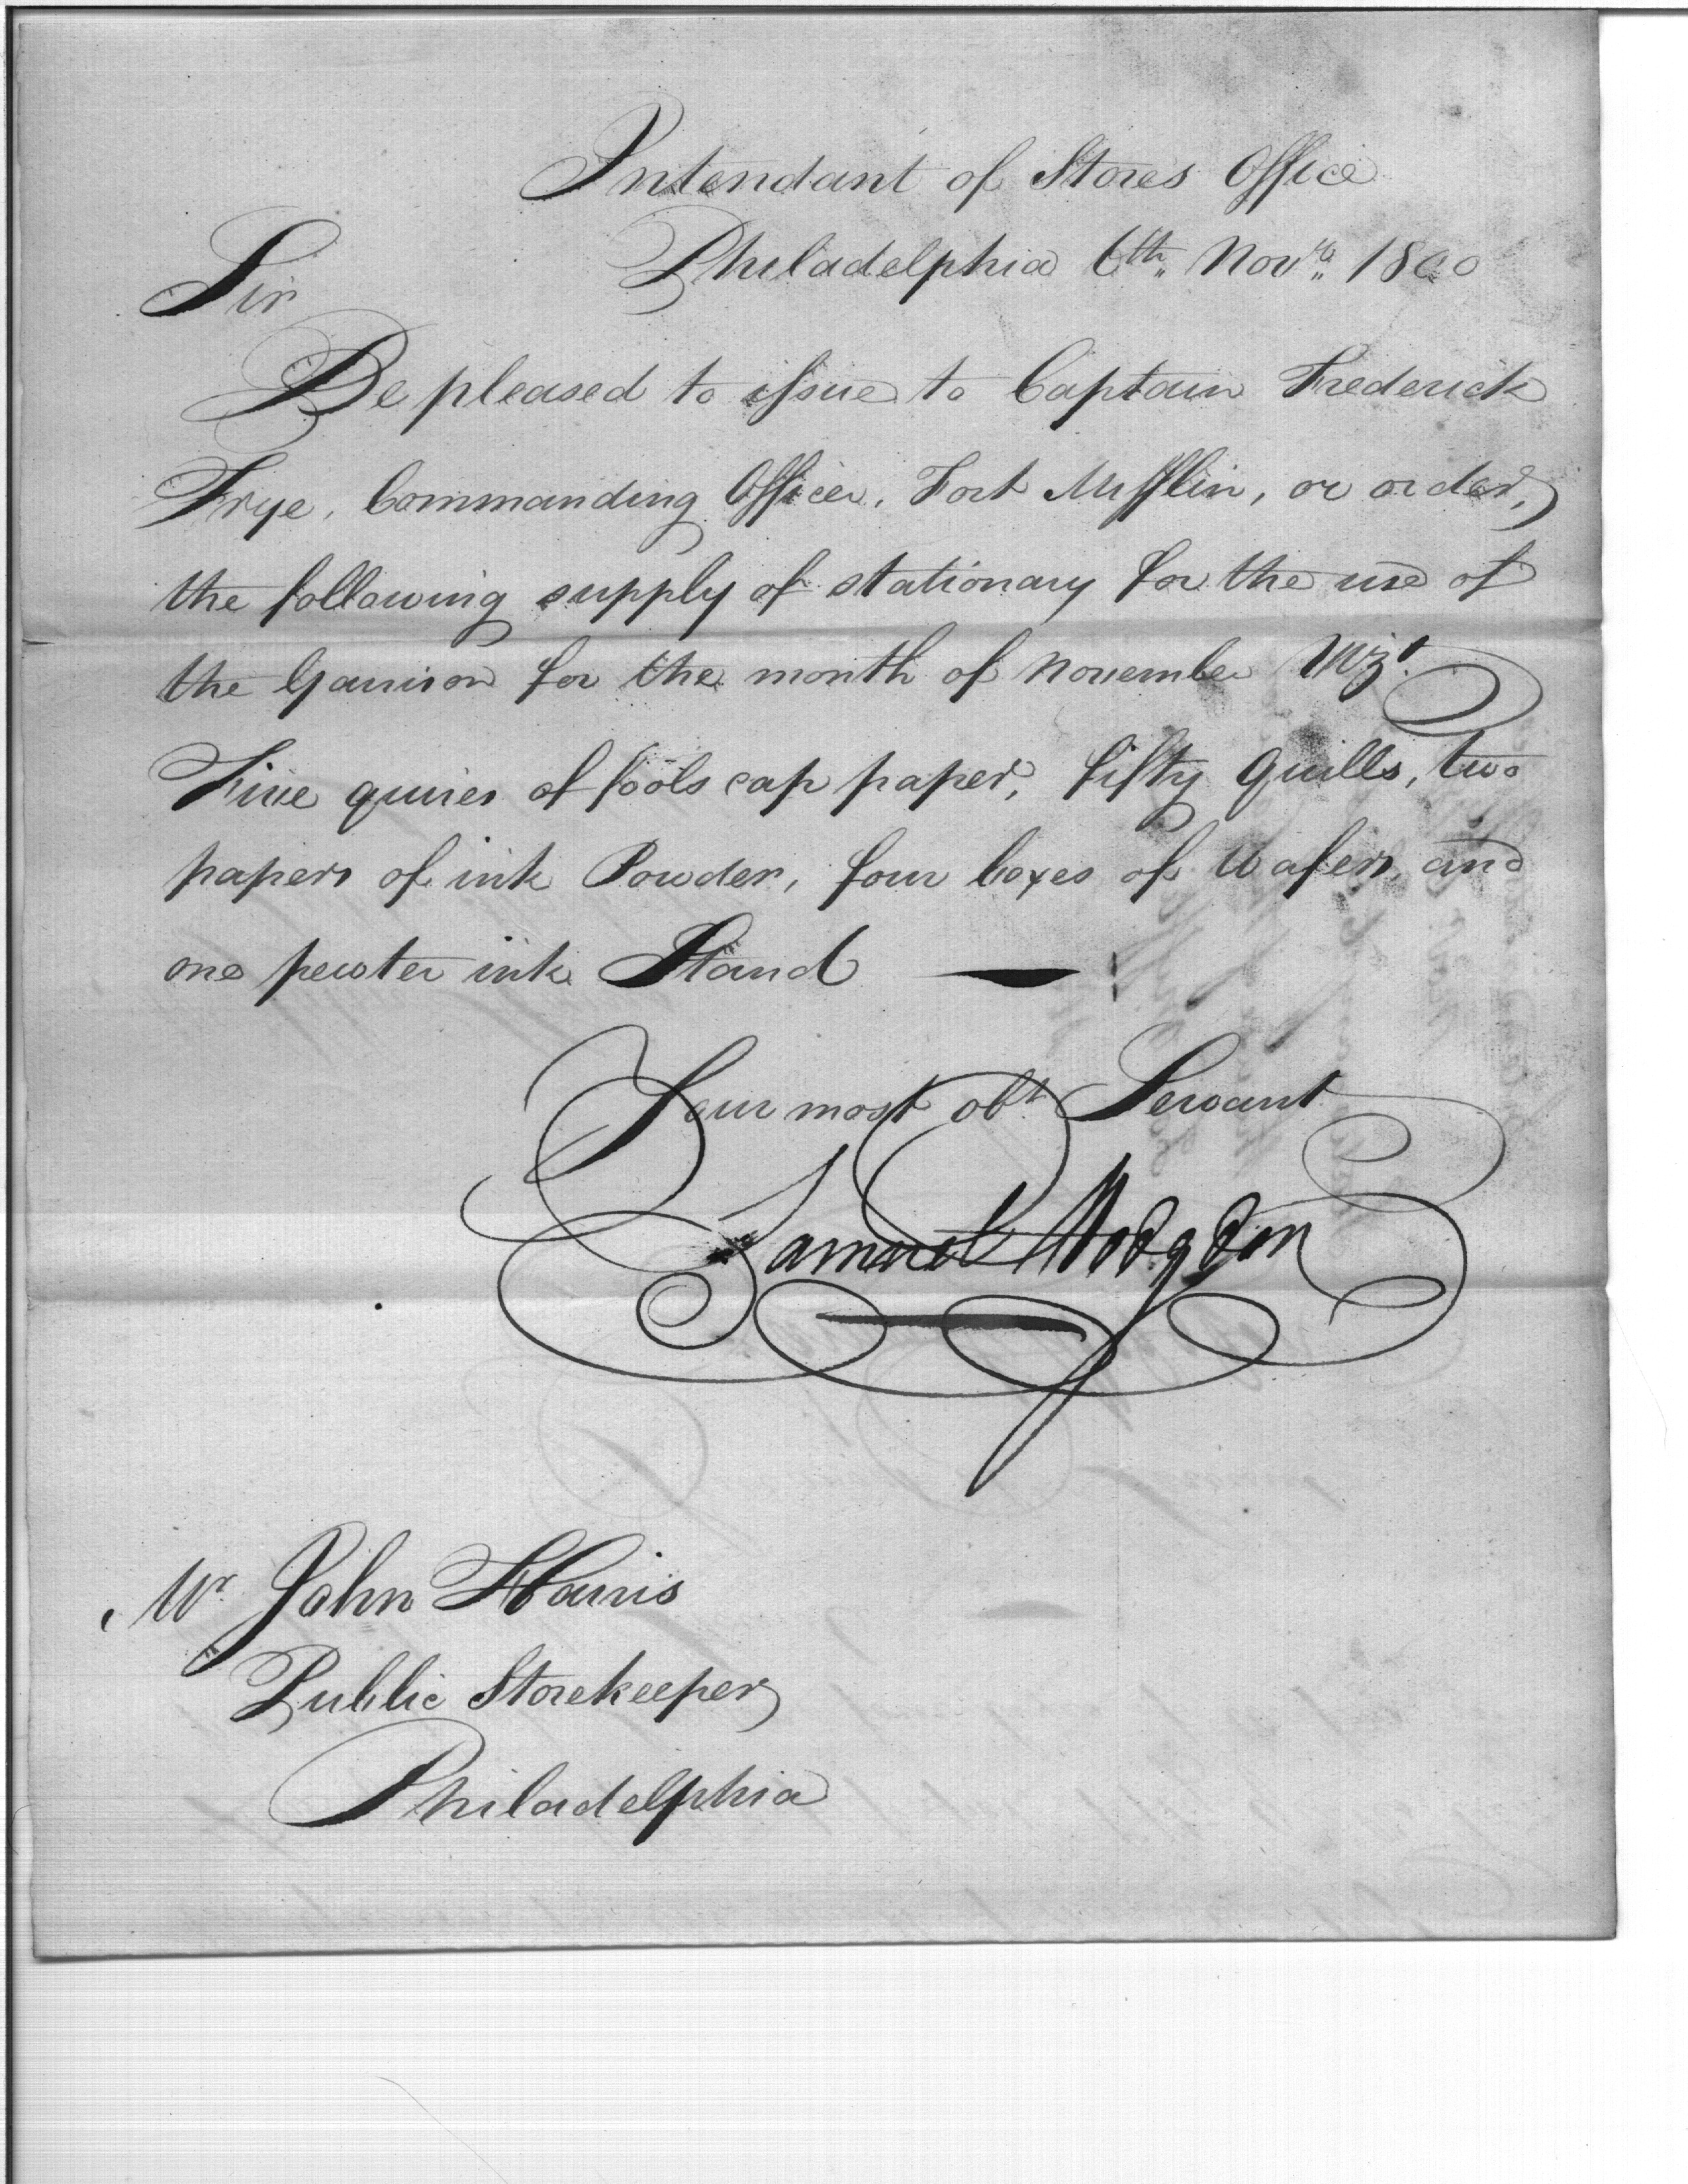 Intendant of Stores Office
Philadelphia 6th Novr 1800
Sir
Be pleased to issue to Captain Frederick
Frye, Commanding Officer, Fort Mifflin, or order,
the following supply of stationary for the use of
the Garrison for the month of November Vizt.
Five quires of fools cap paper, fifty Quills, two
papers of ink Powder, four boxes of Wafers, and
one pewter ink Stand
Your most obt Servant
Samuel Hodgdon
Mr John Harris
Public Storekeeper
Philadelphia